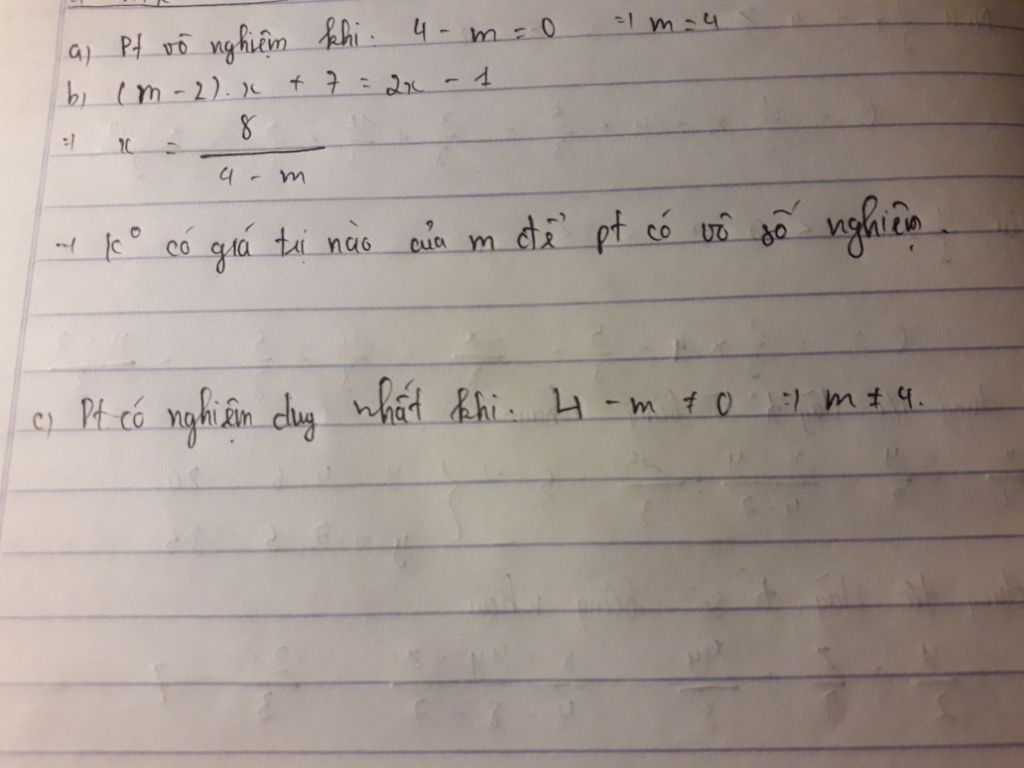 a) Pt vô nghiệm khi: 4 - m = 0 => m = 4
b) (m - 2). x + 7 = 2x - 1
=> x = 8 / 4 - m
→ K° có giá trị nào của m để pt có vô số nghiệm.
c) Pt có nghiệm duy nhất khi: 4 - m ≠ 0 => m ≠ 4.